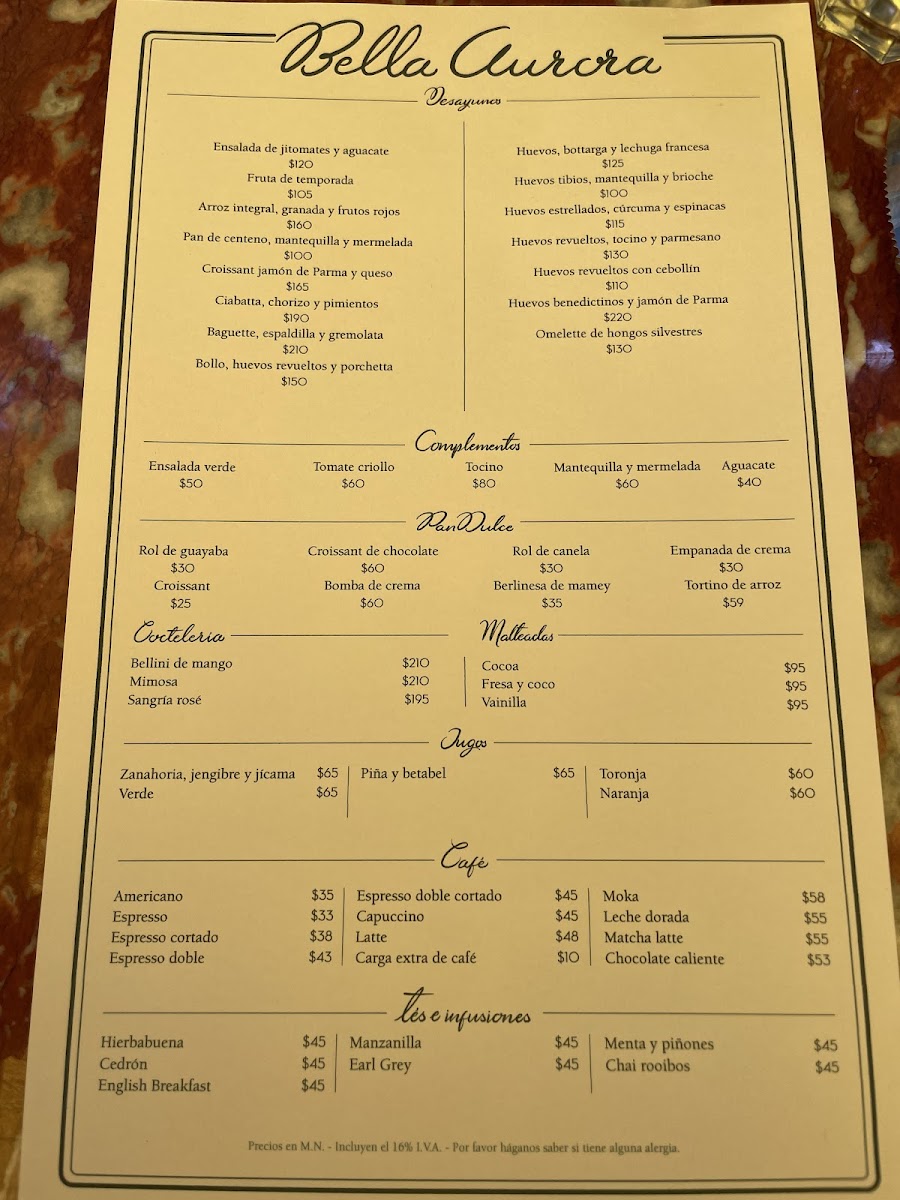 Bella Aurora
Desayunos
Ensalada de jitomates y aguacate
$120
Fruta de temporada
$105
Arroz integral, granada y frutos rojos
$160
Pan de centeno, mantequilla y mermelada
$100
Croissant jamón de Parma y queso
$165
Ciabatta, chorizo y pimientos
$190
Baguette, espaldilla y gremolata
$210
Bollo, huevos revueltos y porchetta
$150
Huevos, bottarga y lechuga francesa
$125
Huevos tibios, mantequilla y brioche
$100
Huevos estrellados, cúrcuma y espinacas
$115
Huevos revueltos, tocino y parmesano
$130
Huevos revueltos con cebollín
$110
Huevos benedictinos y jamón de Parma
$220
Omelette de hongos silvestres
$130
Complementos
Ensalada verde Tomate criollo Tocino Mantequilla y mermelada Aguacate
$50 $60 $80 $60 $40
Pan Dulce
Rol de guayaba Croissant de chocolate Rol de canela Empanada de crema
$30 $60 $30 $30
Croissant Bomba de crema Berlinesa de mamey Tortino de arroz
$25 $60 $35 $59
Cocteleria
Bellini de mango $210
Mimosa $210
Sangría rosé $195
Malteadas
Cocoa $95
Fresa y coco $95
Vainilla $95
Jugos
Zanahoria, jengibre y jícama $65
Verde $65
Piña y betabel $65
Toronja $60
Naranja $60
Café
Americano $35
Espresso $33
Espresso cortado $38
Espresso doble $43
Espresso doble cortado $45
Capuccino $45
Latte $48
Carga extra de café $10
Moka $58
Leche dorada $55
Matcha latte $55
Chocolate caliente $53
tés e infusiones
Hierbabuena $45
Cedrón $45
English Breakfast $45
Manzanilla $45
Earl Grey $45
Menta y piñones $45
Chai rooibos $45
Precios en M.N. - Incluyen el 16% I.V.A. - Por favor háganos saber si tiene alguna alergia.